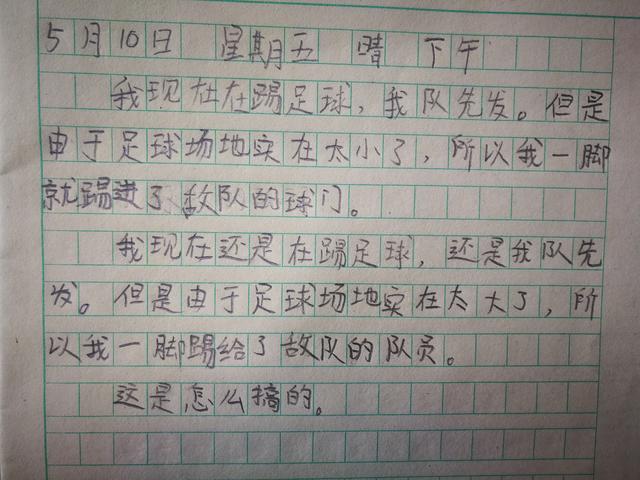 5月10日 星期五 晴 下午
我现在在踢足球，我队先发。但是
由于足球场地实在太小了，所以我一脚
就踢进了敌队的球门。
我现在还是在踢足球，还是我队先
发。但是由于足球场地实在太大了，所
以我一脚踢给了敌队的队员。
这是怎么搞的。